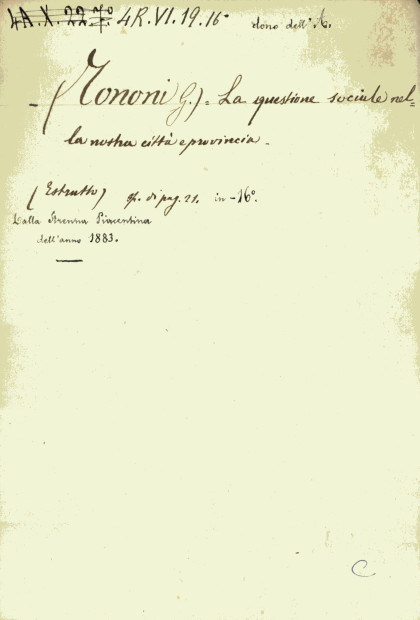 4A.X.22.7º 4R.VI.19.16º dono dell'A.
- (Tononi G.) = La questione sociale nel=
la nostra città e provincia -
(Estratto) op. di pag. 21. in-16º.
Dalla Strenna Piacentina
dell'anno 1883.
C